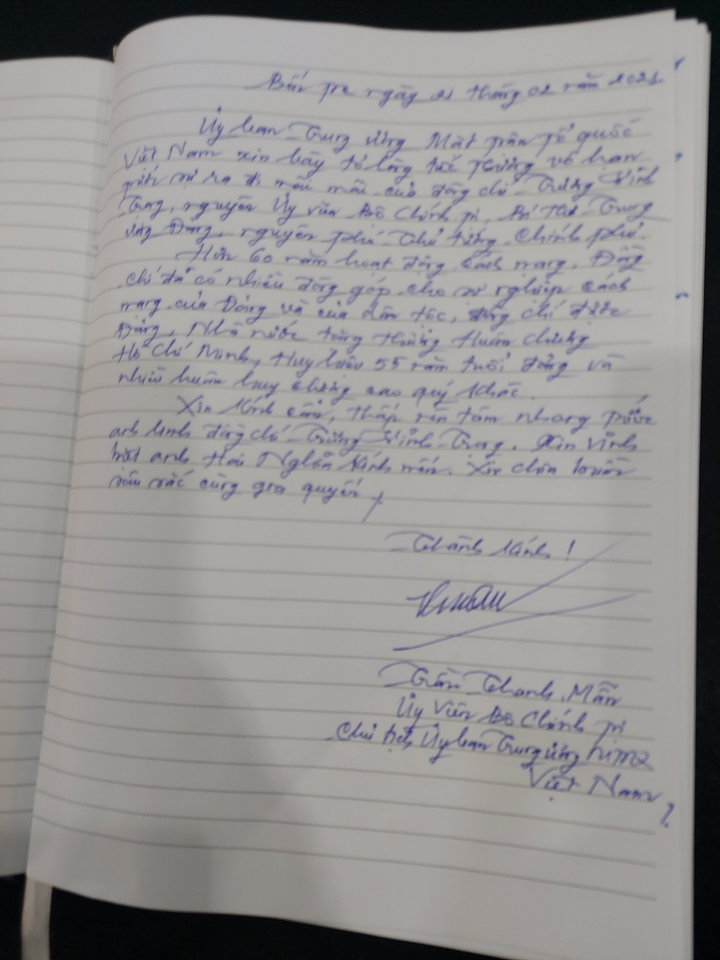 Bến Tre ngày 21 tháng 02 năm 2021
Ủy ban Trung ương Mặt trận Tổ quốc
Việt Nam xin bày tỏ lòng tiếc thương vô hạn
trước sự ra đi mãi mãi của đồng chí Trương Vĩnh
Trọng, nguyên Ủy viên Bộ Chính trị, Bí thư Trung
ương Đảng, nguyên Phó Thủ tướng Chính phủ.
Hơn 60 năm hoạt động cách mạng, Đồng
chí đã có nhiều đóng góp cho sự nghiệp cách
mạng của Đảng và của dân tộc, đồng chí được
Đảng, Nhà nước tặng thưởng Huân chương
Hồ Chí Minh, Huy hiệu 55 năm tuổi đảng và
nhiều huân huy chương cao quý khác.
Xin kính cẩn, thắp nén tâm nhang trước
anh linh đồng chí Trương Vĩnh Trọng. Xin vĩnh
biệt anh Hai Nghĩa kính mến. Xin chia buồn
sâu sắc cùng gia quyến!
Thành kính!
Trần Thanh Mẫn
Ủy viên Bộ Chính trị
Chủ tịch Ủy ban Trung ương MTTQ
Việt Nam